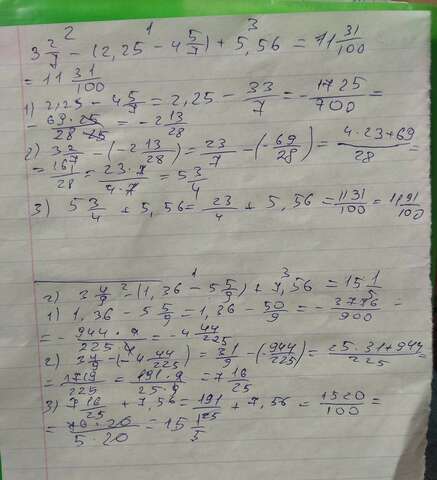 2 1 3
3 2/7 - (2,25 - 4 5/7) + 5,56 = 11 31/100
= 11 31/100
1) 2,25 - 4 5/7 = 2,25 - 33/7 = - 1725/700 =
- 69·25/28·25 = - 2 13/28
2) 3 2/7 - (-2 13/28) = 23/7 - (-69/28) = 4·23+69/28 =
= 161/28 = 23·7/4·7 = 5 3/4
3) 5 3/4 + 5,56 = 23/4 + 5,56 = 1131/100 = 11 31/100
2 1 3
г) 3 4/9 - (1,36 - 5 5/9) + 7,56 = 15 1/5
1) 1,36 - 5 5/9 = 1,36 - 50/9 = - 3776/900 =
= - 944·4/225·4 = - 4 44/225
2) 3 4/9 - (-4 44/225) = 31/9 - (-944/225) = 25·31+944/225
= 1719/225 = 191·9/25·9 = 7 16/25
3) 7 16/25 + 7,56 = 191/25 + 7,56 = 1520/100 =
= 76·20/5·20 = 15 1/5